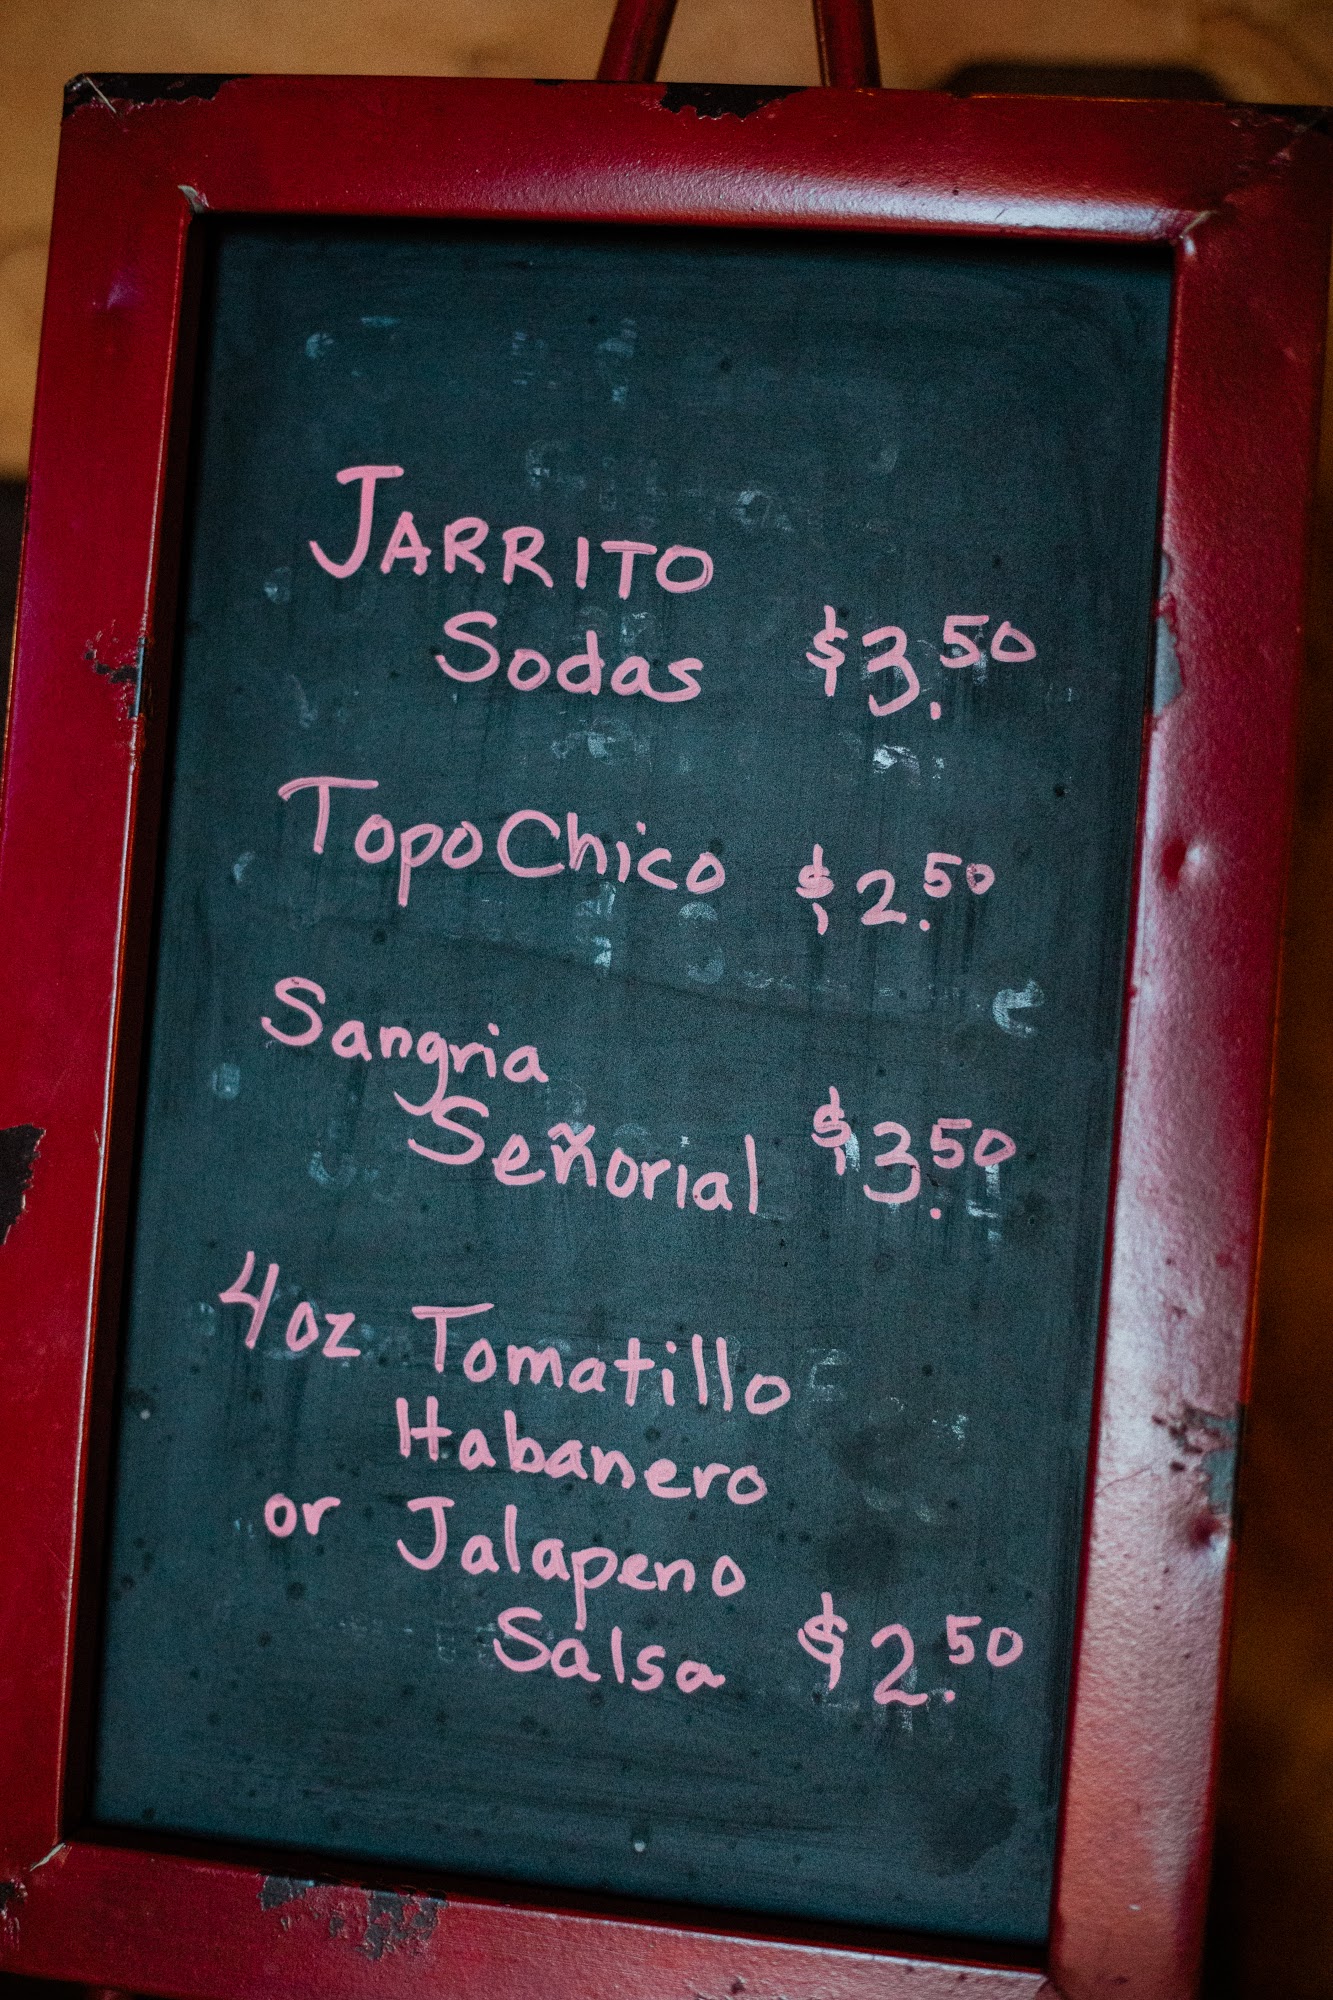 JARRITO
Sodas $3.50
Topo Chico $2.50
Sangria
Señorial $3.50
4oz Tomatillo
Habanero
or Jalapeno
Salsa $2.50